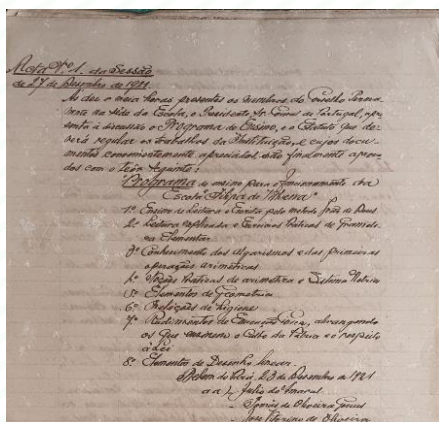 Acta Nº 1. da Sessão
de 27 de Dezembro de 1921.
As dez e meia horas presentes os membros do Conselho Perma
nente na séde da Escola, o Presidente Sr. Consul de Portugal, apre
senta à discussão o Programa de Ensino, e o Estatuto que de
verá regular os trabalhos da Instituição, e cujos docu
mentos convenientemente apreciados são finalmente aprova
dos com o teôr seguinte:
Programa de ensino para o funcionamento da
Escola "Filipa de Vilhena"
1º Ensino de Leitura e Escrita pelo metodo João de Deus
2º Leitura explicada e Exercicios Praticos de Gramati
ca Elementar
3º Conhecimento dos algarismos e das primeiras
operações arimeticas
4º Noções Praticas de arimetica e Sistema Metrico
5º Elementos de Geometria
6º Noções de Higiene
7º Rudimentos de Educação Civica, abrangendo
os que ensinem o Culto da Patria e o respeito
à Lei
8º Elementos de Desenho linear.
Belem do Pará, 23 de Dezembro de 1921
a a) Julio do Amaral
- Tomás de Oliveira
- José Vitorino de Oliveira